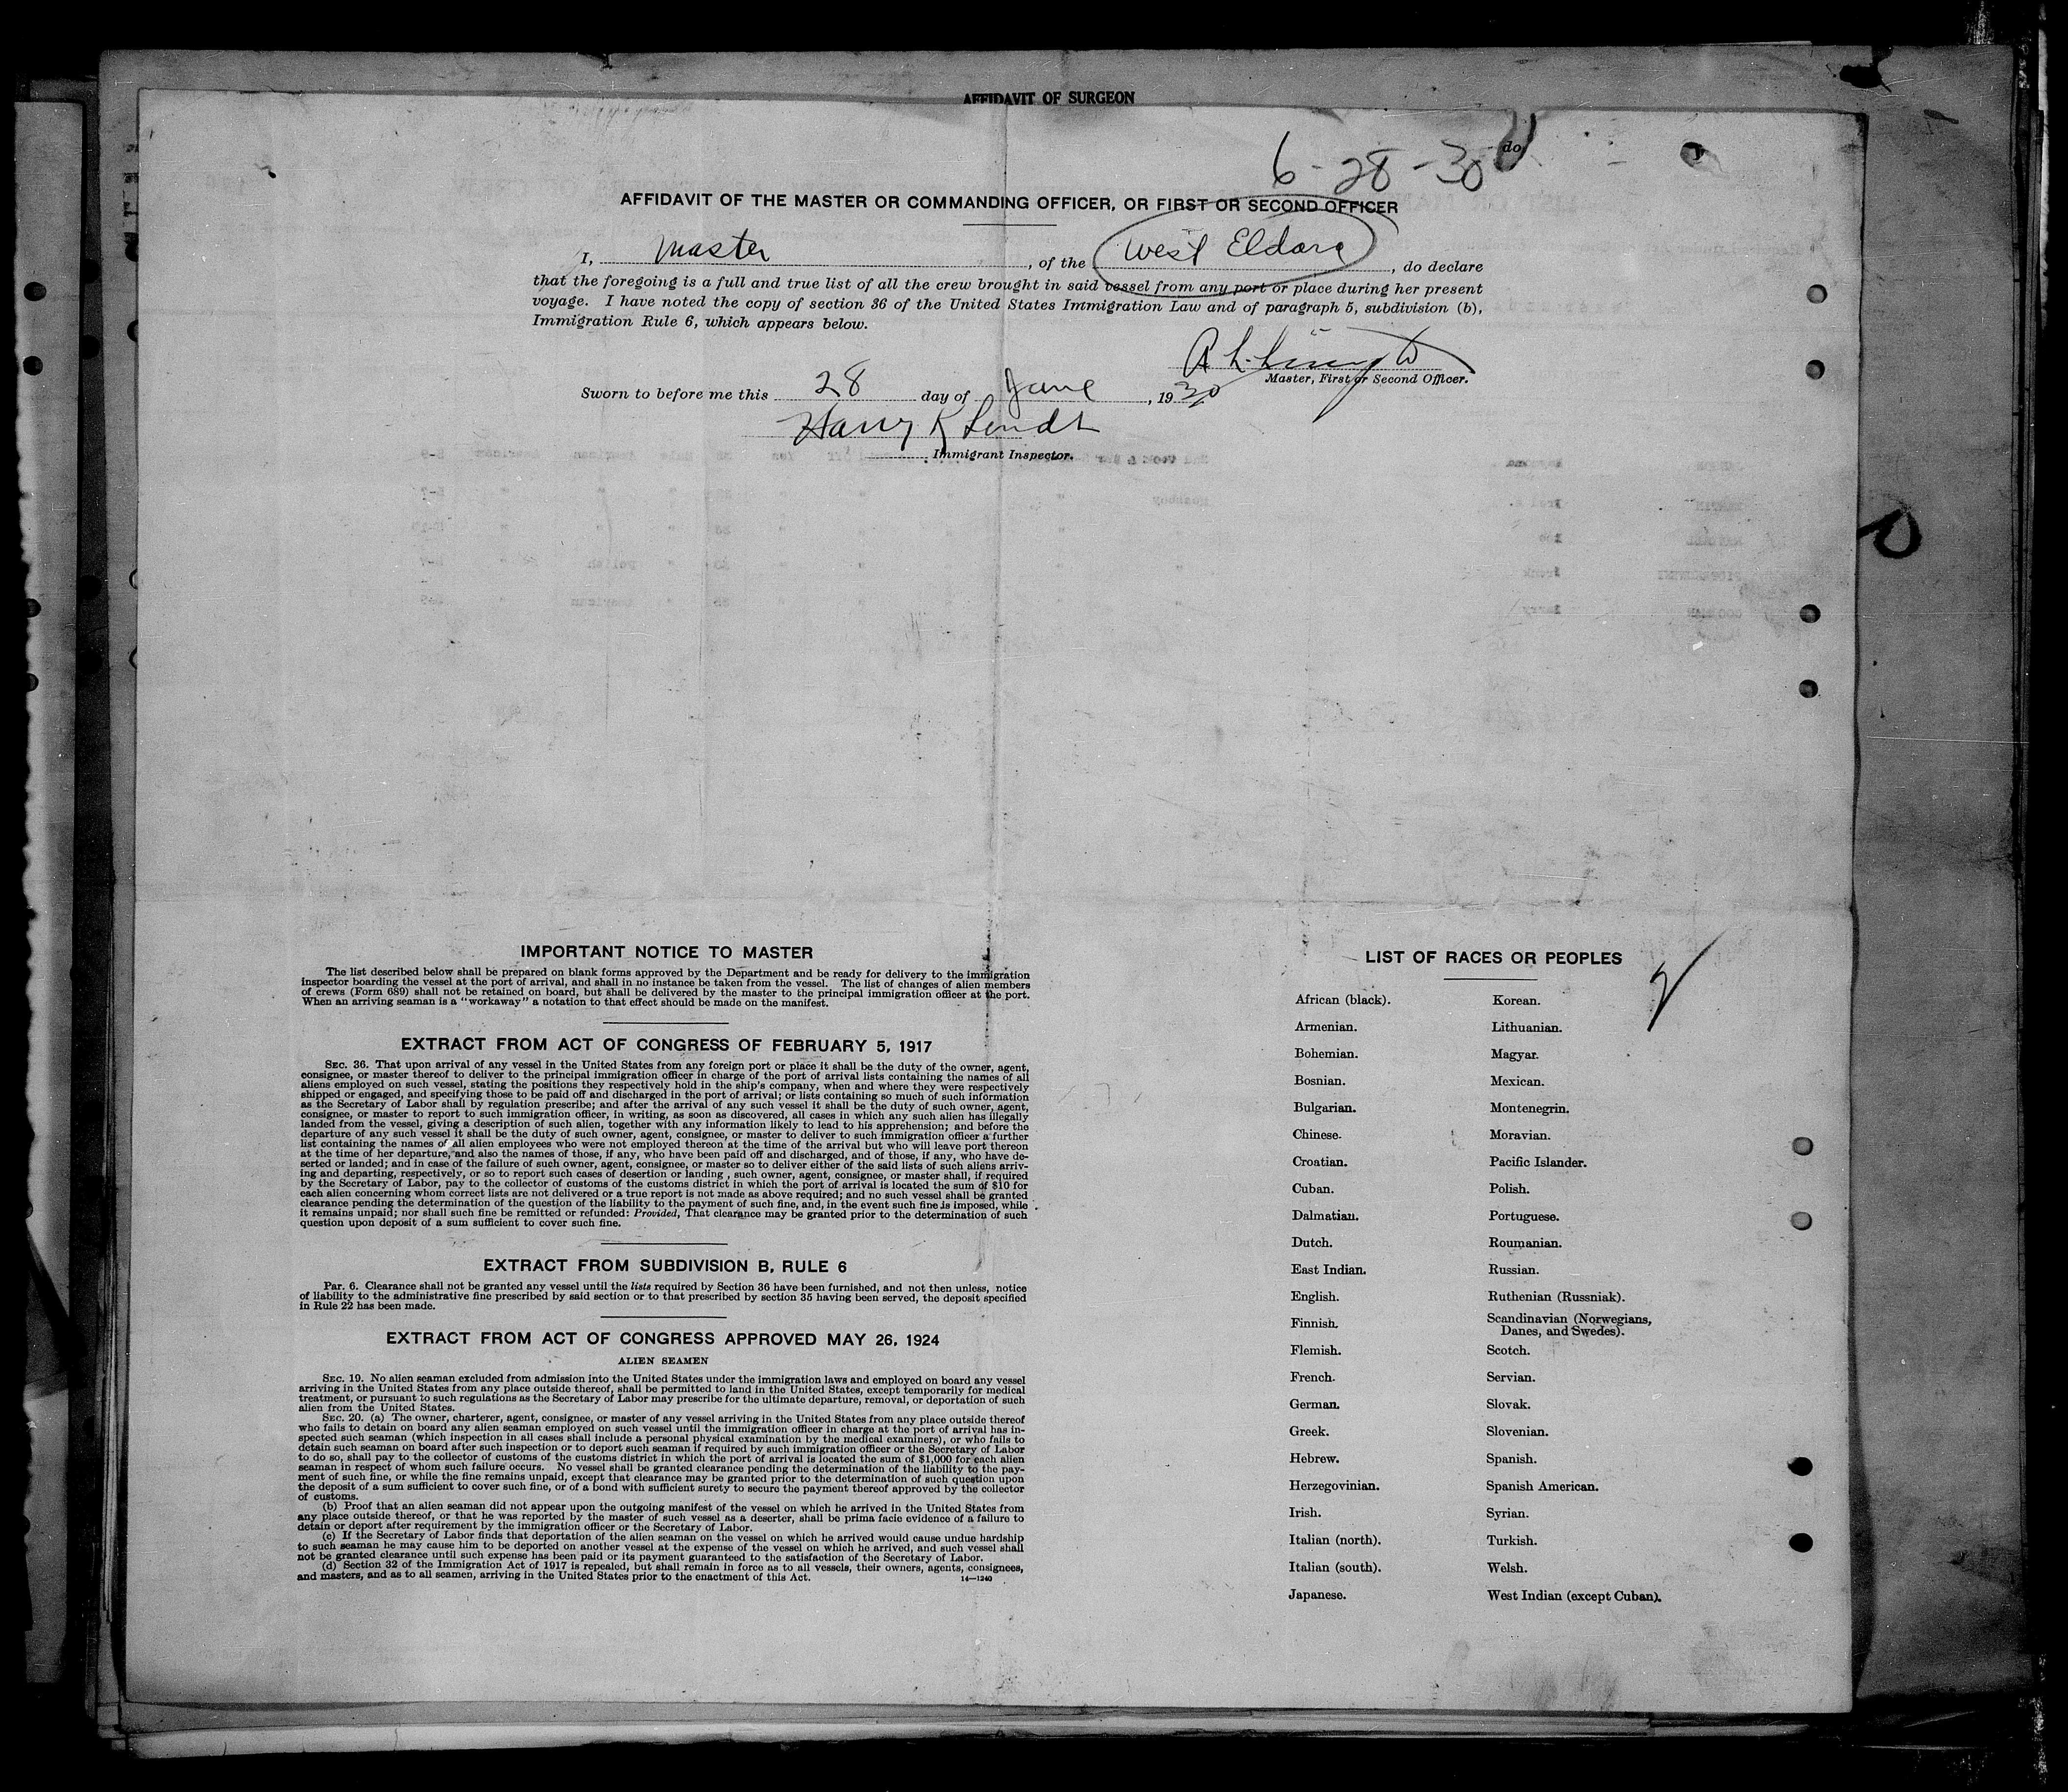 AFFIDAVIT OF SURGEON
do
6-28-30
AFFIDAVIT OF THE MASTER OR COMMANDING OFFICER, OR FIRST OR SECOND OFFICER
I, Master, of the West Eldara, do declare
that the foregoing is a full and true list of all the crew brought in said vessel from any port or place during her present
voyage. I have noted the copy of section 36 of the United States Immigration Law and of paragraph 5, subdivision (b),
Immigration Rule 6, which appears below.
Master, First or Second Officer.
Sworn to before me this 28 day of June, 1930
Harry K
Immigrant Inspector.
IMPORTANT NOTICE TO MASTER
The list described below shall be prepared on blank forms approved by the Department and be ready for delivery to the immigration
inspector boarding the vessel at the port of arrival, and shall in no instance be taken from the vessel. The list of changes of alien members
of crews (Form 689) shall not be retained on board, but shall be delivered by the master to the principal immigration officer at the port.
When an arriving seaman is a "workaway" a notation to that effect should be made on the manifest.
EXTRACT FROM ACT OF CONGRESS OF FEBRUARY 5, 1917
SEC. 36. That upon arrival of any vessel in the United States from any foreign port or place it shall be the duty of the owner, agent,
consignee, or master thereof to deliver to the principal immigration officer in charge of the port of arrival lists containing the names of all
aliens employed on such vessel, stating the positions they respectively hold in the ship's company, when and where they were respectively
shipped or engaged, and specifying those to be paid off and discharged in the port of arrival; or lists containing so much of such information
as the Secretary of Labor shall by regulation prescribe; and after the arrival of any such vessel it shall be the duty of such owner, agent,
consignee, or master to report to such immigration officer, in writing, as soon as discovered, all cases in which any such alien has illegally
landed from the vessel, giving a description of such alien, together with any information likely to lead to his apprehension; and before the
departure of any such vessel it shall be the duty of such owner, agent, consignee, or master to deliver to such immigration officer a further
list containing the names of all alien employees who were not employed thereon at the time of the arrival but who will leave port thereon
at the time of her departure, and also the names of those, if any, who have been paid off and discharged, and of those, if any, who have de-
serted or landed; and in case of the failure of such owner, agent, consignee, or master so to deliver either of the said lists of such aliens arriv-
ing and departing, respectively, or so to report such cases of desertion or landing, such owner, agent, consignee, or master shall, if required
by the Secretary of Labor, pay to the collector of customs of the customs district in which the port of arrival is located the sum of $10 for
each alien concerning whom correct lists are not delivered or a true report is not made as above required; and no such vessel shall be granted
clearance pending the determination of the question of the liability to the payment of such fine, and, in the event such fine is imposed, while
it remains unpaid; nor shall such fine be remitted or refunded: Provided, That clearance may be granted prior to the determination of such
question upon deposit of a sum sufficient to cover such fine.
EXTRACT FROM SUBDIVISION B, RULE 6
Par. 6. Clearance shall not be granted any vessel until the lists required by Section 36 have been furnished, and not then unless, notice
of liability to the administrative fine prescribed by said section or to that prescribed by section 35 having been served, the deposit specified
in Rule 22 has been made.
EXTRACT FROM ACT OF CONGRESS APPROVED MAY 26, 1924
ALIEN SEAMEN
SEC. 19. No alien seaman excluded from admission into the United States under the immigration laws and employed on board any vessel
arriving in the United States from any place outside thereof, shall be permitted to land in the United States, except temporarily for medical
treatment, or pursuant to such regulations as the Secretary of Labor may prescribe for the ultimate departure, removal, or deportation of such
alien from the United States.
SEC. 20. (a) The owner, charterer, agent, consignee, or master of any vessel arriving in the United States from any place outside thereof
who fails to detain on board any alien seaman employed on such vessel until the immigration officer in charge at the port of arrival has in-
spected such seaman (which inspection in all cases shall include a personal physical examination by the medical examiners), or who fails to
detain such seaman on board after such inspection or to deport such seaman if required by such immigration officer or the Secretary of Labor
to do so, shall pay to the collector of customs of the customs district in which the port of arrival is located the sum of $1,000 for each alien
seaman in respect of whom such failure occurs. No vessel shall be granted clearance pending the determination of the liability to the pay-
ment of such fine, or while the fine remains unpaid, except that clearance may be granted prior to the determination of such question upon
the deposit of a sum sufficient to cover such fine, or of a bond with sufficient surety to secure the payment thereof approved by the collector
of customs.
(b) Proof that an alien seaman did not appear upon the outgoing manifest of the vessel on which he arrived in the United States from
any place outside thereof, or that he was reported by the master of such vessel as a deserter, shall be prima facie evidence of a failure to
detain or deport after requirement by the immigration officer or the Secretary of Labor.
(c) If the Secretary of Labor finds that deportation of the alien seaman on the vessel on which he arrived would cause undue hardship
to such seaman he may cause him to be deported on another vessel at the expense of the vessel on which he arrived, and such vessel shall
not be granted clearance until such expense has been paid or its payment guaranteed to the satisfaction of the Secretary of Labor.
(d) Section 32 of the Immigration Act of 1917 is repealed, but shall remain in force as to all vessels, their owners, agents, consignees,
and masters, and as to all seamen, arriving in the United States prior to the enactment of this Act.
14—1240
LIST OF RACES OR PEOPLES
African (black). Korean.
Armenian. Lithuanian.
Bohemian. Magyar.
Bosnian. Mexican.
Bulgarian. Montenegrin.
Chinese. Moravian.
Croatian. Pacific Islander.
Cuban. Polish.
Dalmatian. Portuguese.
Dutch. Roumanian.
East Indian. Russian.
English. Ruthenian (Russniak).
Finnish. Scandinavian (Norwegians,
Danes, and Swedes).
Flemish. Scotch.
French. Servian.
German. Slovak.
Greek. Slovenian.
Hebrew. Spanish.
Herzegovinian. Spanish American.
Irish. Syrian.
Italian (north). Turkish.
Italian (south). Welsh.
Japanese. West Indian (except Cuban).